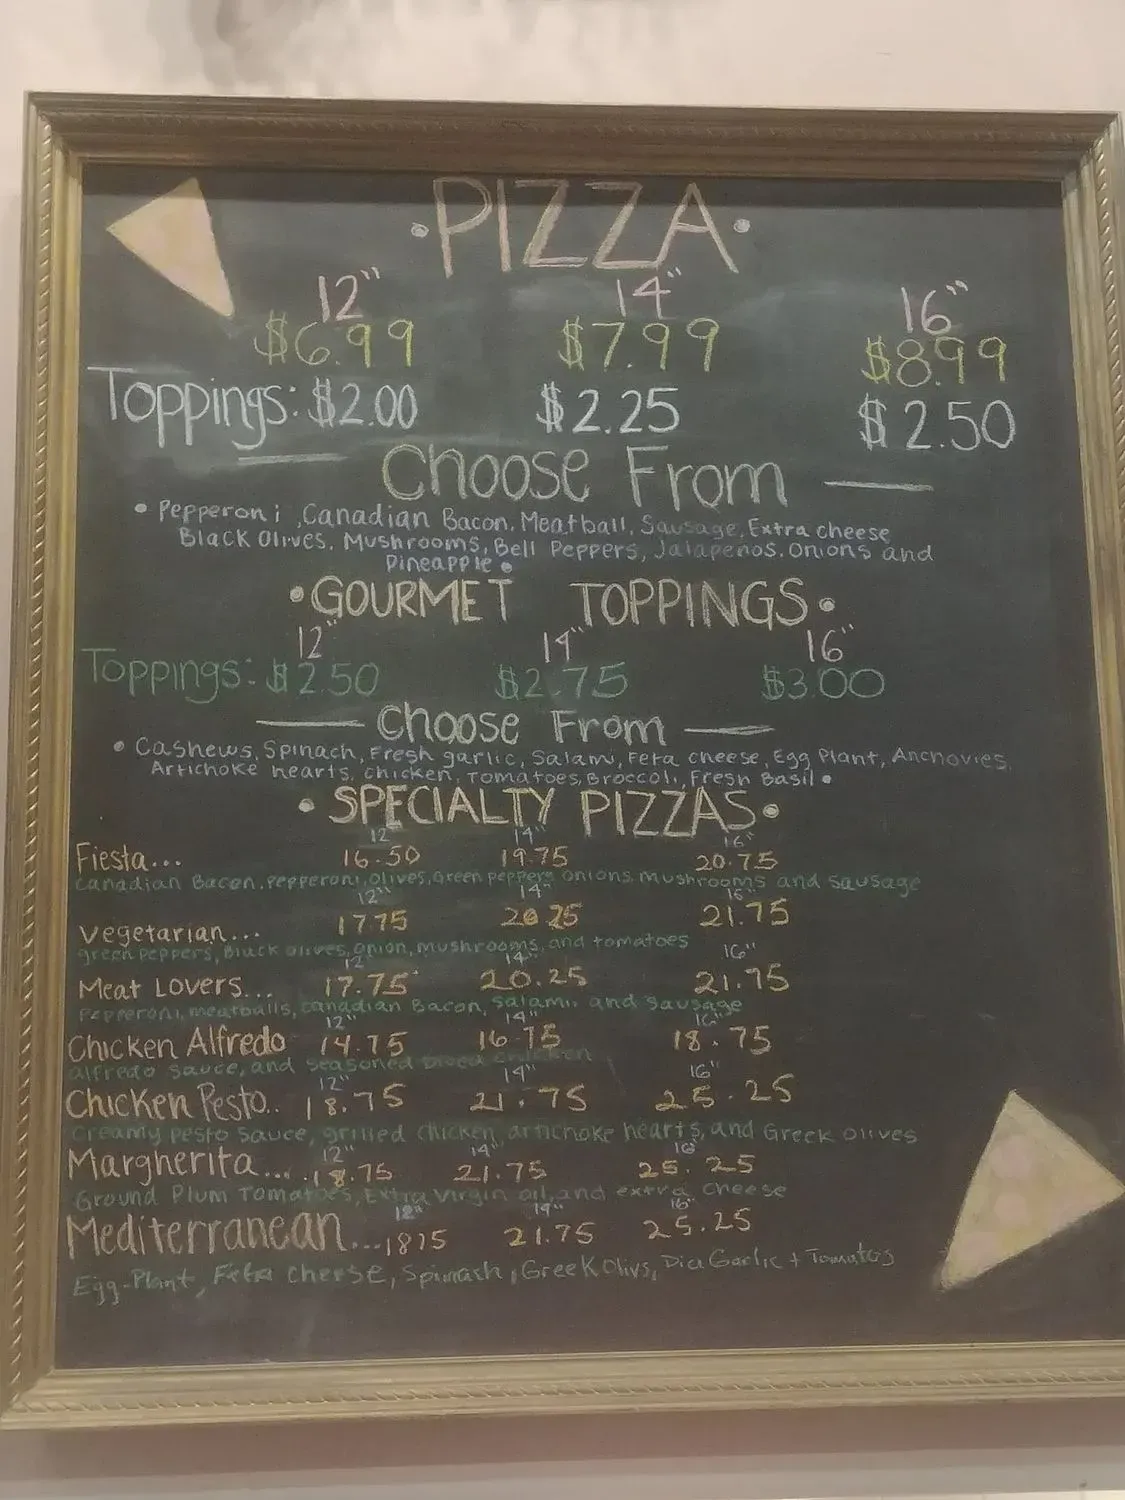 • PIZZA •
12" 14" 16"
$6.99 $7.99 $8.99
Toppings: $2.00 $2.25 $2.50
Choose From
• Pepperoni, Canadian Bacon, Meatball, Sausage, Extra cheese
Black Olives, Mushrooms, Bell Peppers, Jalapenos, Onions and
Pineapple •
• GOURMET TOPPINGS •
12" 14" 16"
Toppings: $2.50 $2.75 $3.00
Choose From
• Cashews, Spinach, Fresh garlic, Salami, Feta cheese, Egg Plant, Anchovies,
Artichoke hearts, chicken, Tomatoes, Broccoli, Fresh Basil •
• SPECIALTY PIZZAS •
12" 14" 16"
Fiesta... 16.50 19.75 20.75
Canadian Bacon, Pepperoni, Olives, Green peppers, onions, mushrooms and sausage
12" 14" 16"
Vegetarian... 17.75 20.25 21.75
green peppers, Black olives, onion, mushrooms, and tomatoes
12" 14" 16"
Meat Lovers... 17.75 20.25 21.75
Pepperoni, meatballs, canadian Bacon, salami, and Sausage
12" 14" 16"
Chicken Alfredo 14.75 16.75 18.75
alfredo sauce, and seasoned diced chicken
12" 14" 16"
Chicken Pesto.. 18.75 21.75 25.25
Creamy pesto sauce, grilled chicken, artichoke hearts, and Greek Olives
12" 14" 16"
Margherita.... 18.75 21.75 25.25
Ground Plum Tomatoes, Extra Virgin oil, and extra cheese
12" 14" 16"
Mediterranean... 1875 21.75 25.25
Egg-Plant, Feta cheese, Spinach, Greek Olivs, Garlic + Tomatos